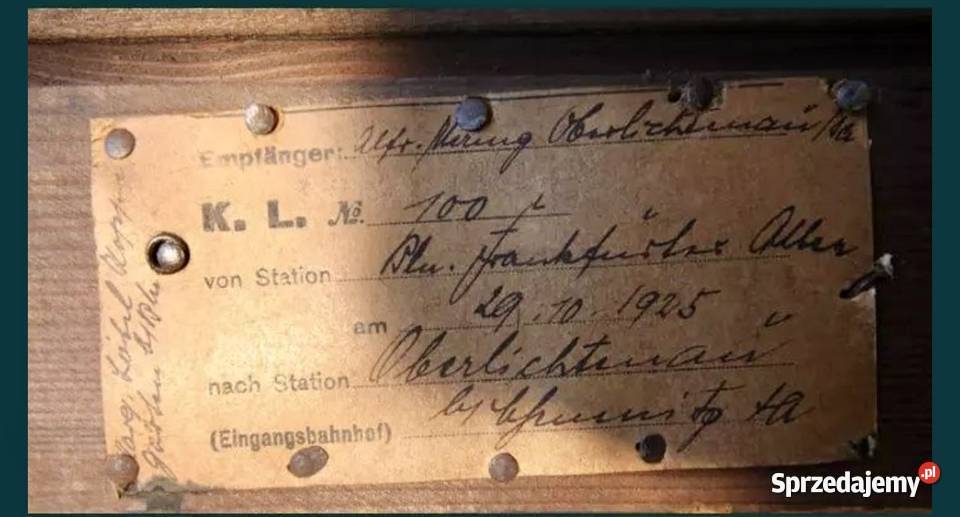 Empfänger: Alfr. Oberlichtenau/Sa
K. L. No. 100
von Station Bln. Frankfurter Allee
am 29.10.1925
nach Station Oberlichtenau
(Eingangsbahnhof) b/ Chemnitz Sa
Sprzedajemy.pl